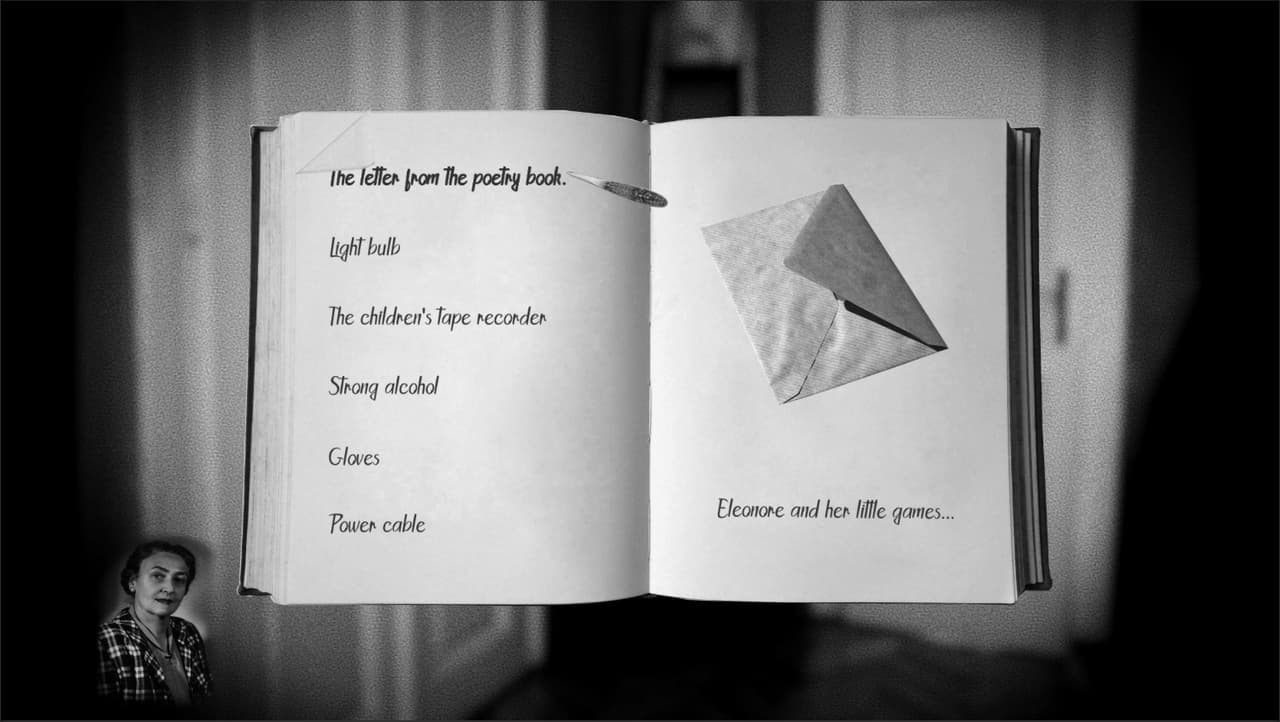 The letter from the poetry book.
Light bulb
The children's tape recorder
Strong alcohol
Gloves
Power cable
Eleonore and her little games...